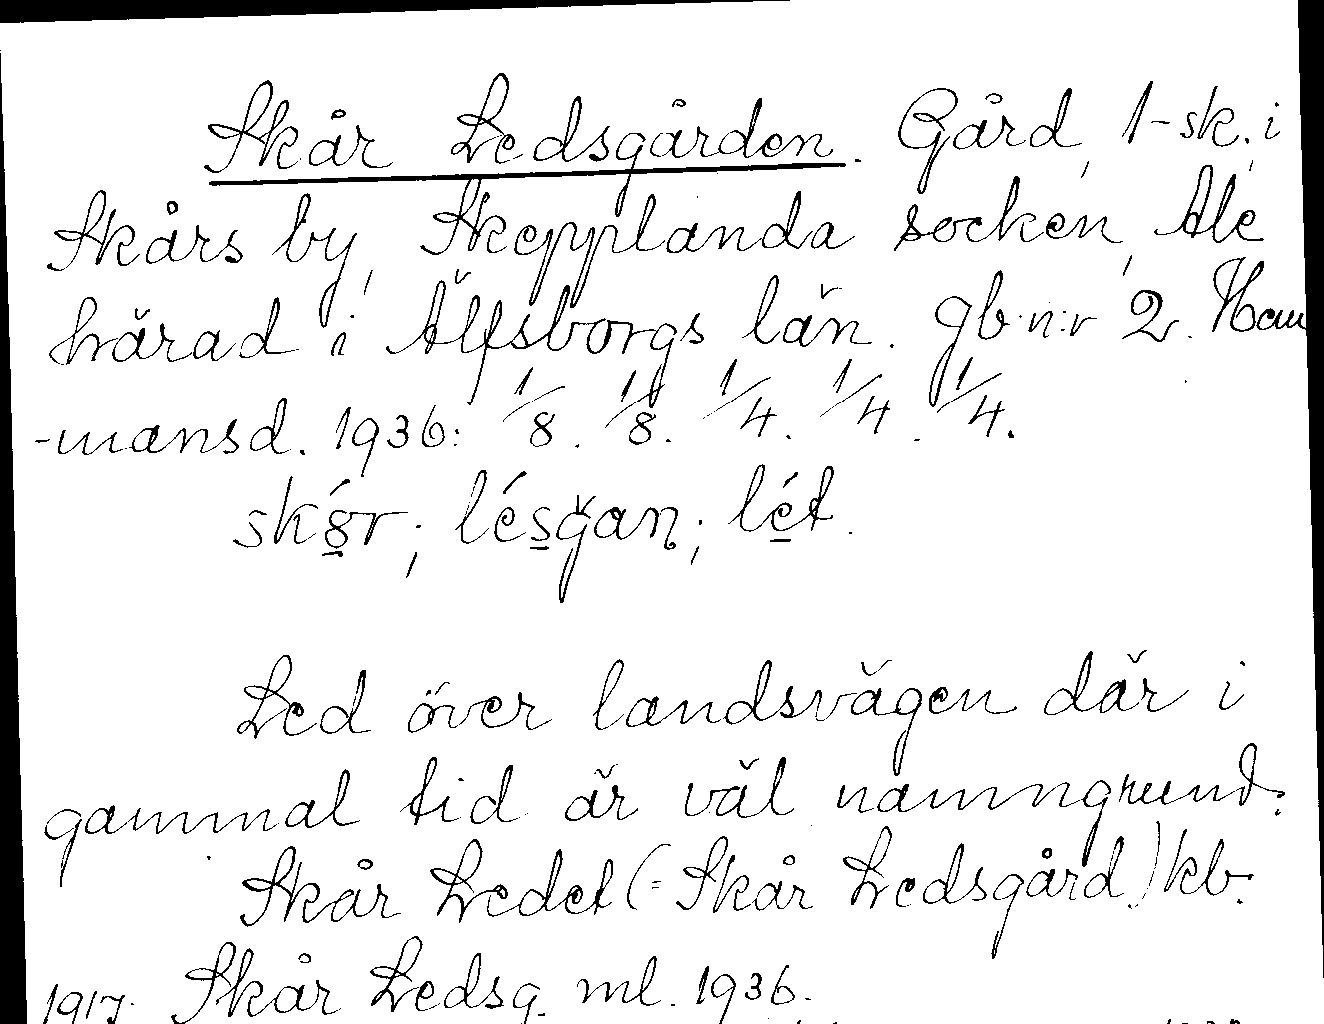 Skår Ledsgården. Gård, 1-sk. i
Skårs by, Skepplanda socken, Ale
härad i Älfsborgs län. gb. n:r 2. Hem
-mansd. 1936: 1/8. 1/8. 1/4. 1/4. 1/4.
Led över landsvägen där i
gammal tid är väl namngrund.
Skår Ledet (= Skår Ledsgård) kb.
1917. Skår Ledsg. ml. 1936.